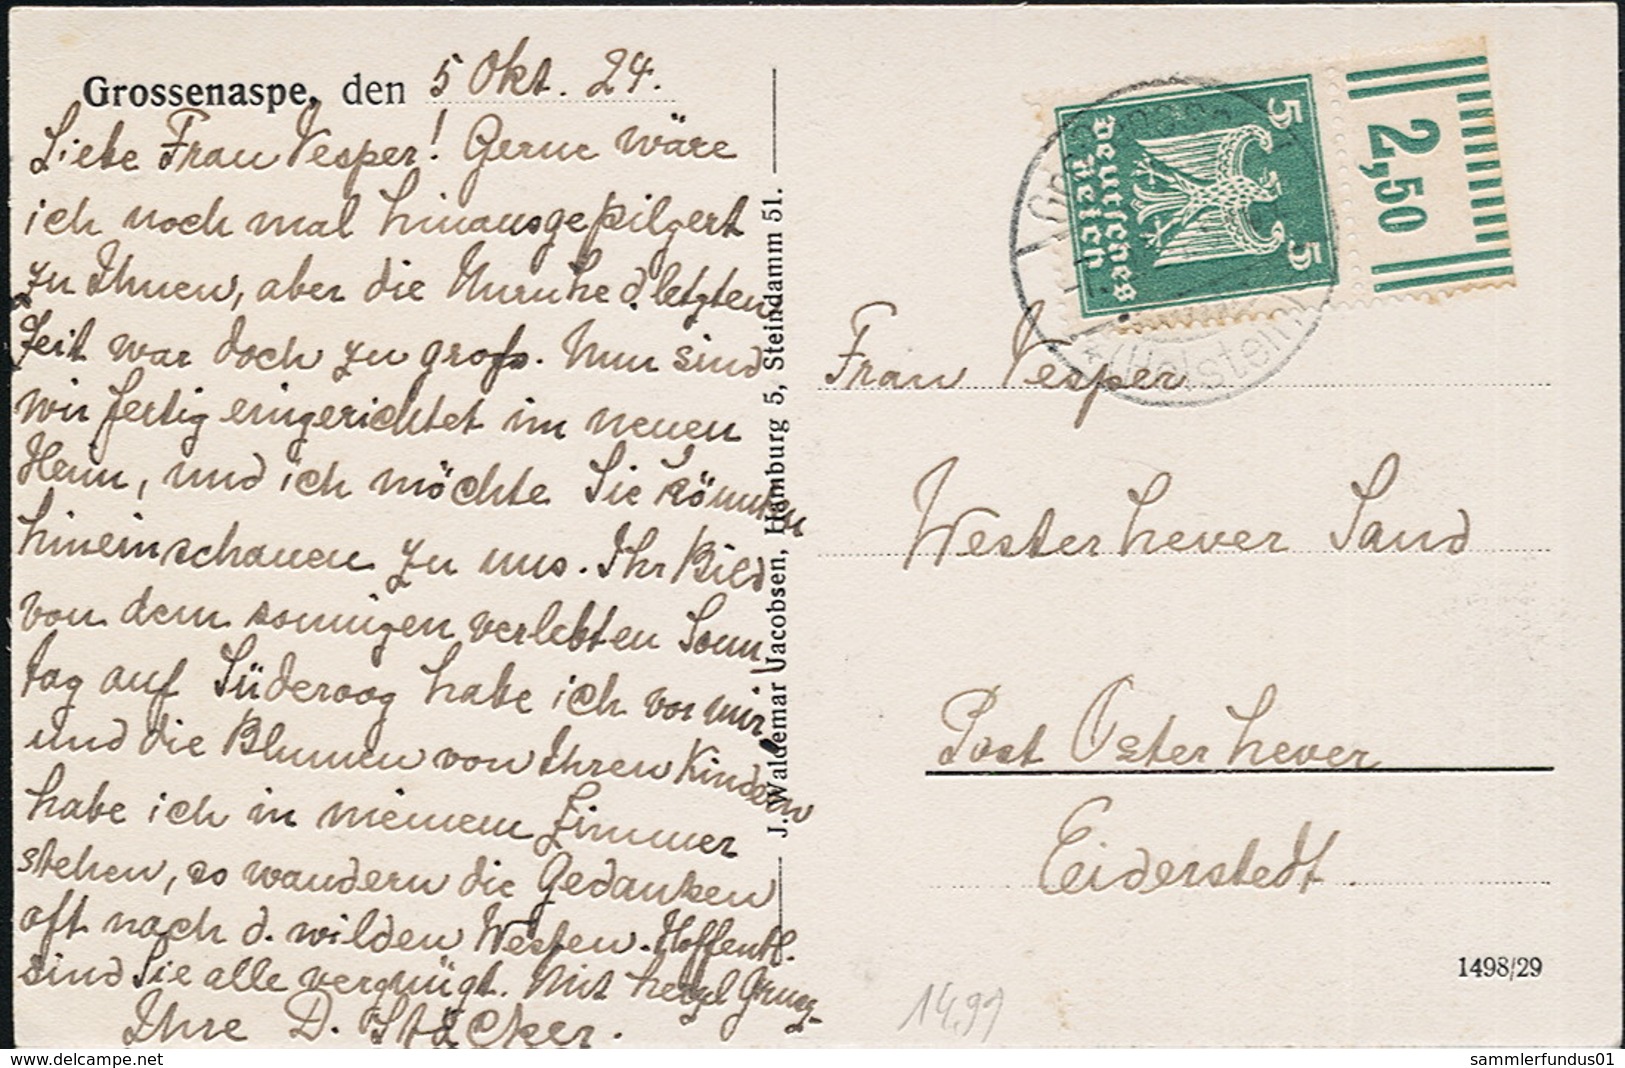 Grossenaspe, den 5 Okt. 24.
Liebe Frau Vesper! Gerne wäre
ich noch mal hinausgepilgert
zu Ihnen, aber die Unruhe d. letzten
Zeit war doch zu gross. Nun sind
wir fertig eingerichtet im neuen
Heim, und ich möchte Sie könnten
hineinschauen zu uns. Ihr Bild
von dem sonnigen verlebten Sonn-
tag auf Süderoog habe ich vor mir
und die Blumen von Ihren Kindern
habe ich in meinem Zimmer
stehen, so wandern die Gedanken
oft nach d. wilden Westen. Hoffentl.
sind Sie alle vergnügt. Mit herzl Gruss
Ihre D. Stäcker.
J. Waldemar Jacobsen, Hamburg 5, Steindamm 51.
5 5
Deutsches
Reich
2,50
(Holstein)
Frau Vesper
Westerhever Sand
Post Osterhever
Eiderstedt
1498/29
14,99
delcampe.net
sammlerfundus01